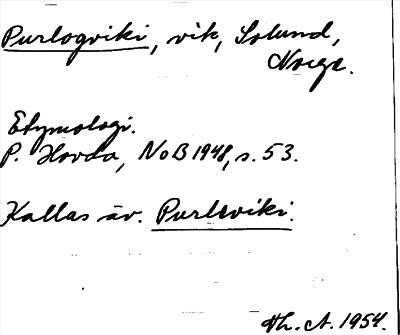 Purlogviki, vik, Solund,
Norge.
Etymologi.
P. Hovda, NoB 1948, s. 53.
Kallas äv. Purlsviki.
Th. A. 1954.